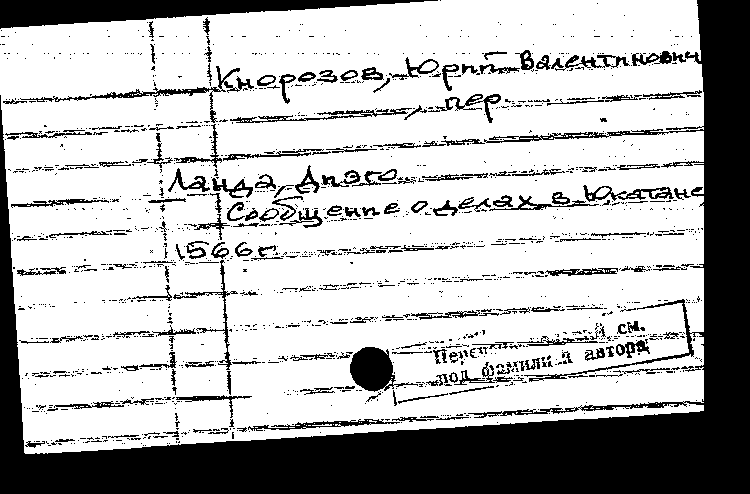 Кнорозов, Юрий Валентинович
, пер.
Ланда, Диэго
Сообщение о делах в Юкатане
1566 г.
см.
под фамилией автора